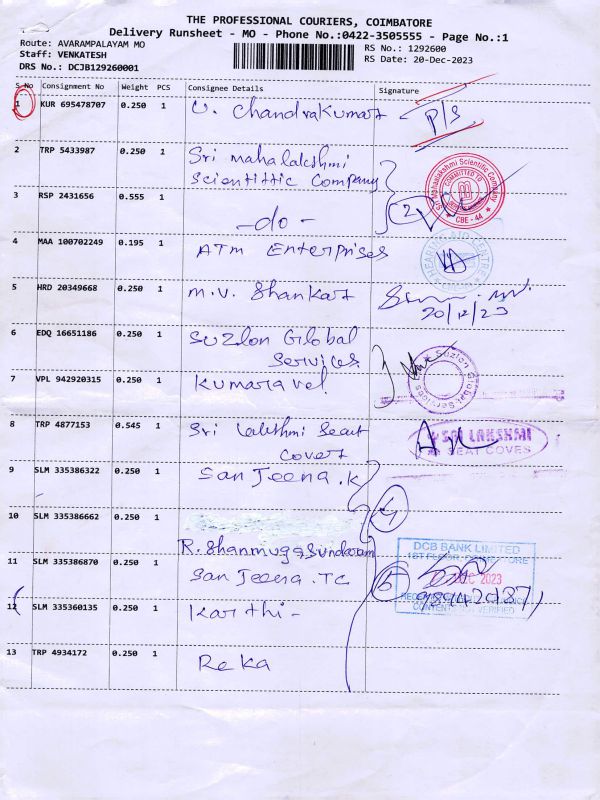 THE PROFESSIONAL COURIERS, COIMBATORE
Delivery Runsheet - MO - Phone No.:0422-3505555 - Page No.:1
Route: AVARAMPALAYAM MO
Staff: VENKATESH
DRS No.: DCJB129260001
RS No.: 1292600
RS Date: 20-Dec-2023
S.No Consignment No Weight PCS Consignee Details Signature
1 KUR 695478707 0.250 1 U. Chandrakumar P/S
2 TRP 5433987 0.250 1 Sri mahalakshmi
Scientific Company
Sri Mahalakshmi Scientific Company
COMMITTED
CBE - 4A
3 RSP 2431656 0.555 1 -do- 2
4 MAA 100702249 0.195 1 ATM Enterprises
HEARING AID CENTRE
5 HRD 20349668 0.250 1 m.v. Shankar
20/12/23
6 EDQ 16651186 0.250 1 Suzlon Global
Services
Suzlon Global Services
7 VPL 942920315 0.250 1 Kumaravel
8 TRP 4877153 0.545 1 Sri Lakshmi Seat
Cover
SRI LAKSHMI
SEAT COVES
9 SLM 335386322 0.250 1 Sanjeena .K
10 SLM 335386662 0.250 1
R. Shanmuga Sundaram
11 SLM 335386870 0.250 1 Sanjeena .TC
5
DCB BANK LIMITED
1ST FLOOR
DEC 2023
12 SLM 335360135 0.250 1 Karthi -
13 TRP 4934172 0.250 1 Reka